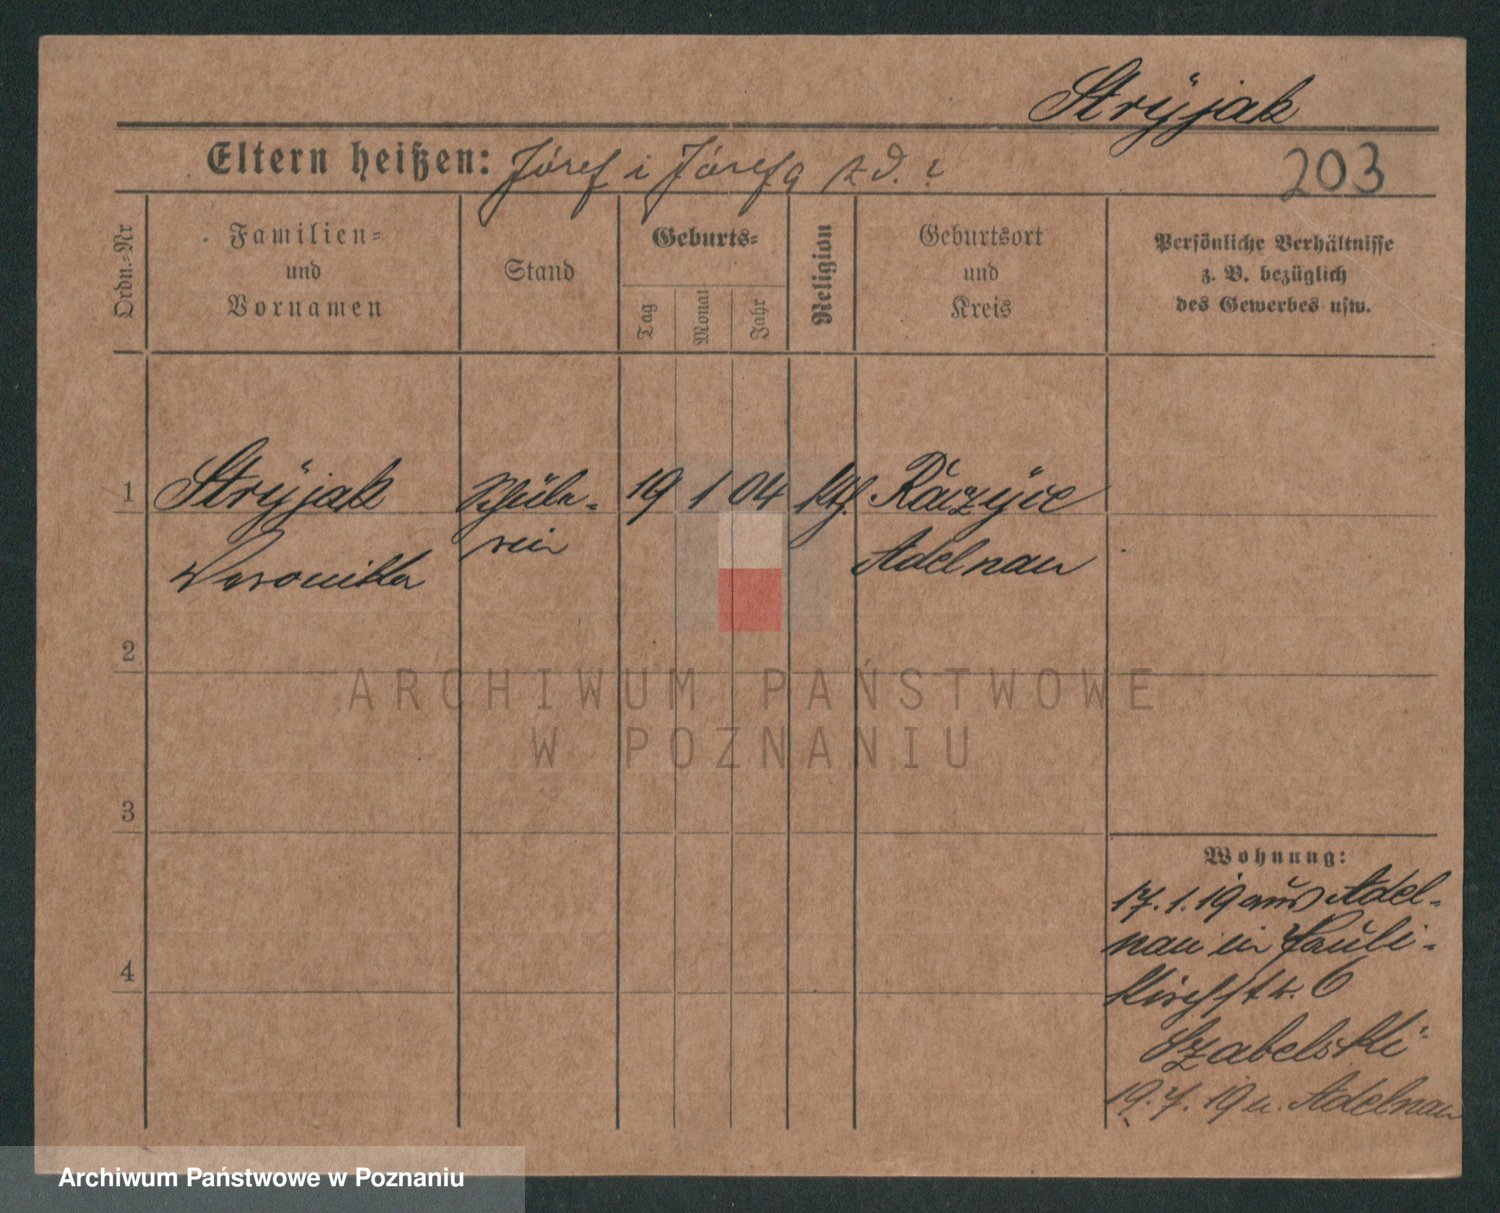 Stryjak
Eltern heißen: Józef i Józefa z d. ?
203
Ordn.-Nr
Familien-
und
Vornamen
Stand
Geburts-
Tag
Monat
Jahr
Religion
Geburtsort
und
Kreis
Persönliche Verhältnisse
z. B. bezüglich
des Gewerbes usw.
1 Stryjak Schüle- 19 1 04 kth. Raczyce
rin
Weronika Adelnau
2
ARCHIWUM PAŃSTWOWE
W POZNANIU
3
Wohnung:
17.1.19 aus Adel-
nau in Pauli-
kirchstr. 6
4
Szabelski
19.7.19 n. Adelnau
Archiwum Państwowe w Poznaniu